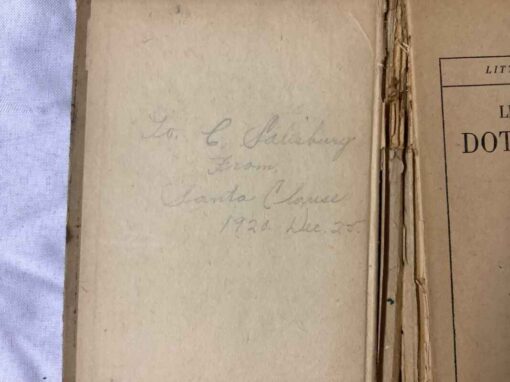 To. C. Salisburg
From.
Santa Clause
1920. Dec. 25.
LITT
L
DOT